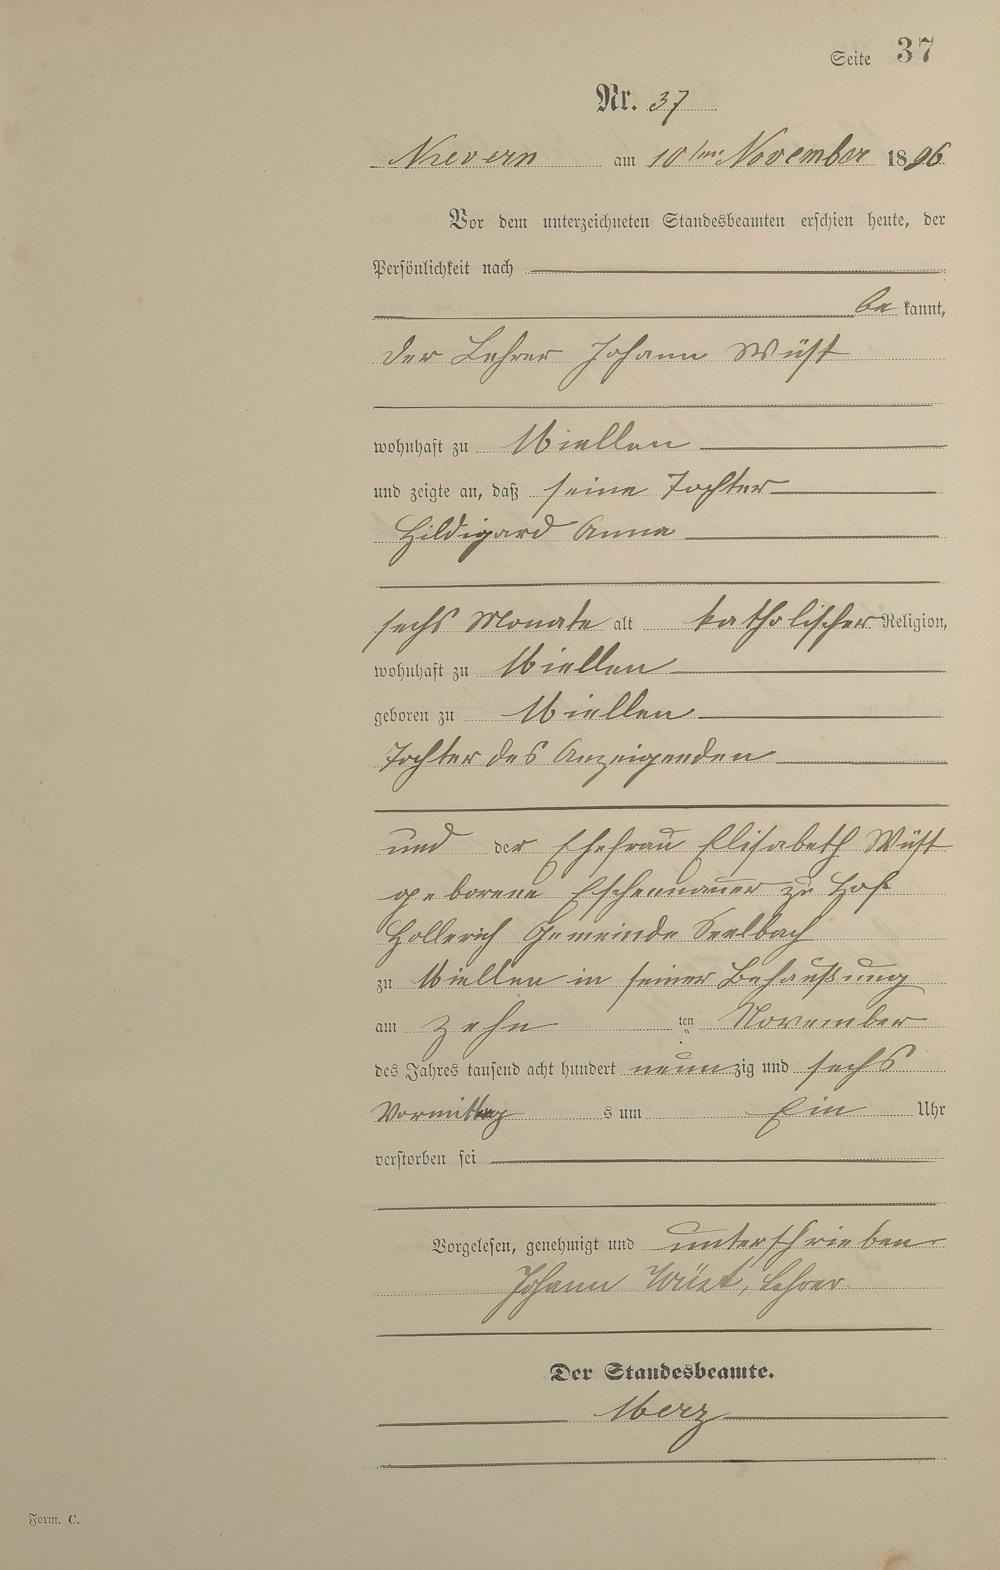 Seite 37
Nr. 37
Nievern am 10ten November 1896
Vor dem unterzeichneten Standesbeamten erschien heute, der
Persönlichkeit nach
be kannt,
der Lehrer Johann Wüst
wohnhaft zu Miellen
und zeigte an, daß seine Tochter
Hildigard Anna
sechs Monate alt katholischer Religion,
wohnhaft zu Miellen
geboren zu Miellen
Tochter des Anzeigenden
und der Ehefrau Elisabeth Wüst
geborene Eschenauer zu Hof
Hollerich Gemeinde Seelbach
zu Miellen in seiner Behaußung
am zehn ten November
des Jahres tausend acht hundert neunzig und sechs
Vormittags um Ein Uhr
verstorben sei
Vorgelesen, genehmigt und unterschrieben
Johann Wüst, Lehrer
Der Standesbeamte.
Merz
Form. C.